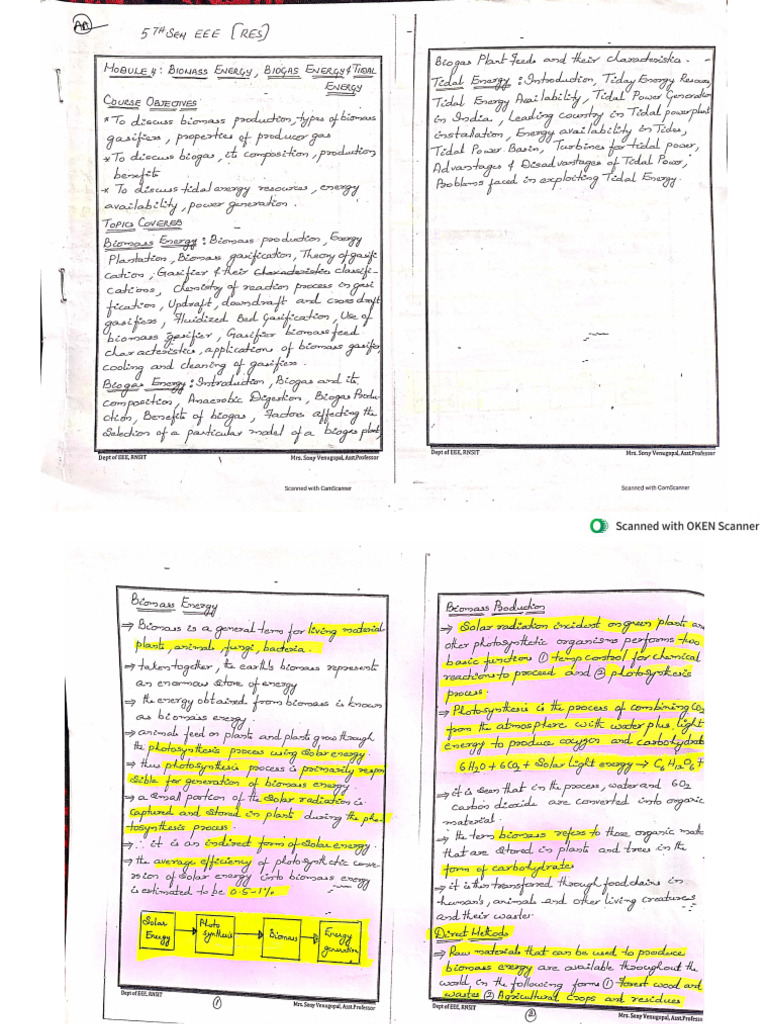 AA
5TH SEM EEE [RES]
MODULE 4: BIOMASS ENERGY, BIOGAS ENERGY & TIDAL
ENERGY
COURSE OBJECTIVES
* To discuss biomass production, types of biomass
gasifiers, properties of producer gas
* To discuss biogas, its composition, production,
benefits
* To discuss tidal energy resources, energy
availability, power generation.
TOPICS COVERED
Biomass Energy: Biomass production, Energy
Plantation, Biomass gasification, Theory of gasifi-
cation, Gasifier & their Characteristics classifi-
cations, chemistry of reaction process in gasi
fication, Updraft, downdraft and cross draft
gasifiers, Fluidized Bed Gasification, Use of
biomass gasifier, Gasifier biomass feed
characteristics, application of biomass gasifier,
cooling and cleaning of gasifiers.
Biogas Energy: Introduction, Biogas and its
composition, Anaerobic Digestion, Biogas Produ-
ction, Benefits of biogas, Factors affecting the
Selection of a particular model of a biogas plant,
Dept of EEE, RNSIT Mrs. Sony Venugopal, Asst.Professor
Scanned with CamScanner
Biogas Plant Feeds and their characteristics.
Tidal Energy: Introduction, Tiday Energy Resource
Tidal Energy Availability, Tidal Power Generation
in India, Leading country in Tidal powerplant
installation, Energy availability in Tides,
Tidal Power Basin, Turbines for tidal power,
Advantages & Disadvantages of Tidal Power,
Problems faced in exploiting Tidal Energy.
Dept of EEE, RNSIT Mrs. Sony Venugopal, Asst.Professor
Scanned with CamScanner
Scanned with OKEN Scanner
Biomass Energy
⇒ Biomass is a general term for living material
plants, animals, fungi, bacteria.
⇒ taken together, the earth's biomass represent
an enormous store of energy
⇒ the energy obtained from biomass is known
as biomass energy.
⇒ animals feed on plants and plants grow through
the photosynthesis process using solar energy.
⇒ thus photosynthesis process is primarily respon
sible for generation of biomass energy.
⇒ a small portion of the Solar radiation is
captured and stored in plants during the pho-
tosynthesis process.
⇒ ∴ it is an indirect form of solar energy.
⇒ the average efficiency of photosynthetic conve-
rsion of solar energy into biomass energy
is estimated to be 0.5-1%
Solar Energy
Photo synthesis
Biomass
Energy generation
Dept of EEE, RNSIT Mrs. Sony Venugopal, Asst.Professor
1
Biomass Production
⇒ Solar radiation incident on green plants an
other photosynthetic organisms performs two
basic function ① temp control for chemical
reactions to proceed and ② photosynthesis
process.
⇒ Photosynthesis is the process of combining CO2
from the atmosphere with water plus light
energy to produce oxygen and carbohydrate
6H2O + 6CO2 + Solar light energy → C6H12O6 +
⇒ it is seen that in the process, water and 6O2
Carbon dioxide are converted into organic
material.
⇒ the term biomass refers to those organic mate
that are stored in plants and trees in the
form of carbohydrates
⇒ it is then transferred through food chains in
human's, animals and other living creatures
and their wastes.
Direct Methods
⇒ Raw materials that can be used to produce
biomass energy are available throughout the
world, in the following forms ① forest wood and
wastes ② Agricultural crops and residues
Dept of EEE, RNSIT Mrs. Sony Venugopal, Asst.Professo
2